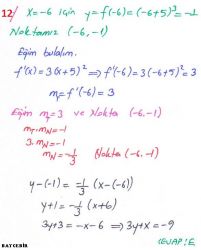 12/ x=-6 için y=f(-6)=(-6+5)³=-1
Noktamız (-6,-1)
Eğim bulalım.
f'(x)=3(x+5)² ⇒ f'(-6)=3(-6+5)²=3
m_T=f'(-6)=3
Eğim m_T=3 ve Nokta (-6,-1)
m_T.m_N=-1
3.m_N=-1
m_N=-1/3 Nokta (-6,-1)
y-(-1)=-1/3(x-(-6))
y+1=-1/3(x+6)
3y+3=-x-6 ⇒ 3y+x=-9
CEVAP:E
BAYÇEBİR